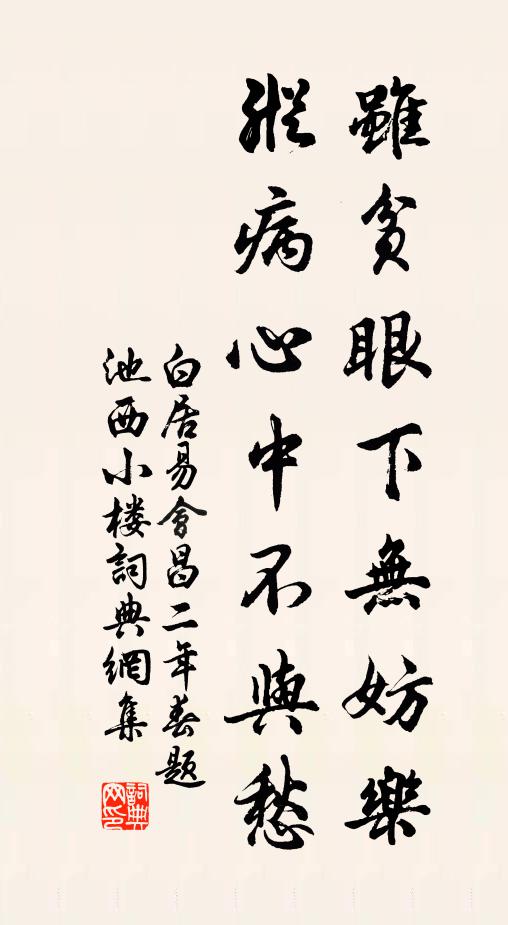 雖貧眼下無妨樂
縱病心中不與愁
白居易會昌二年春題
池西小楼詞典網集
詞典网印